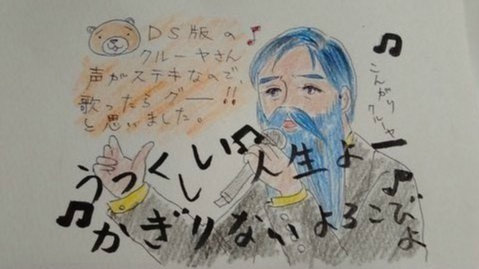 DS版の
クルーヤさん
声がステキなので、
歌ったらグー!!
と思いました。
こんがり
クルーヤ
うつくしい人生よー
かぎりないよろこびよ